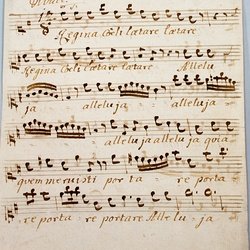 Regina Cœli lætare lætare
Regina Cœli lætare lætare Allelu
ja alleluja alleluja
alleluja alleluja quia
quem meruisti porta re porta
re porta re portare Allelu ja